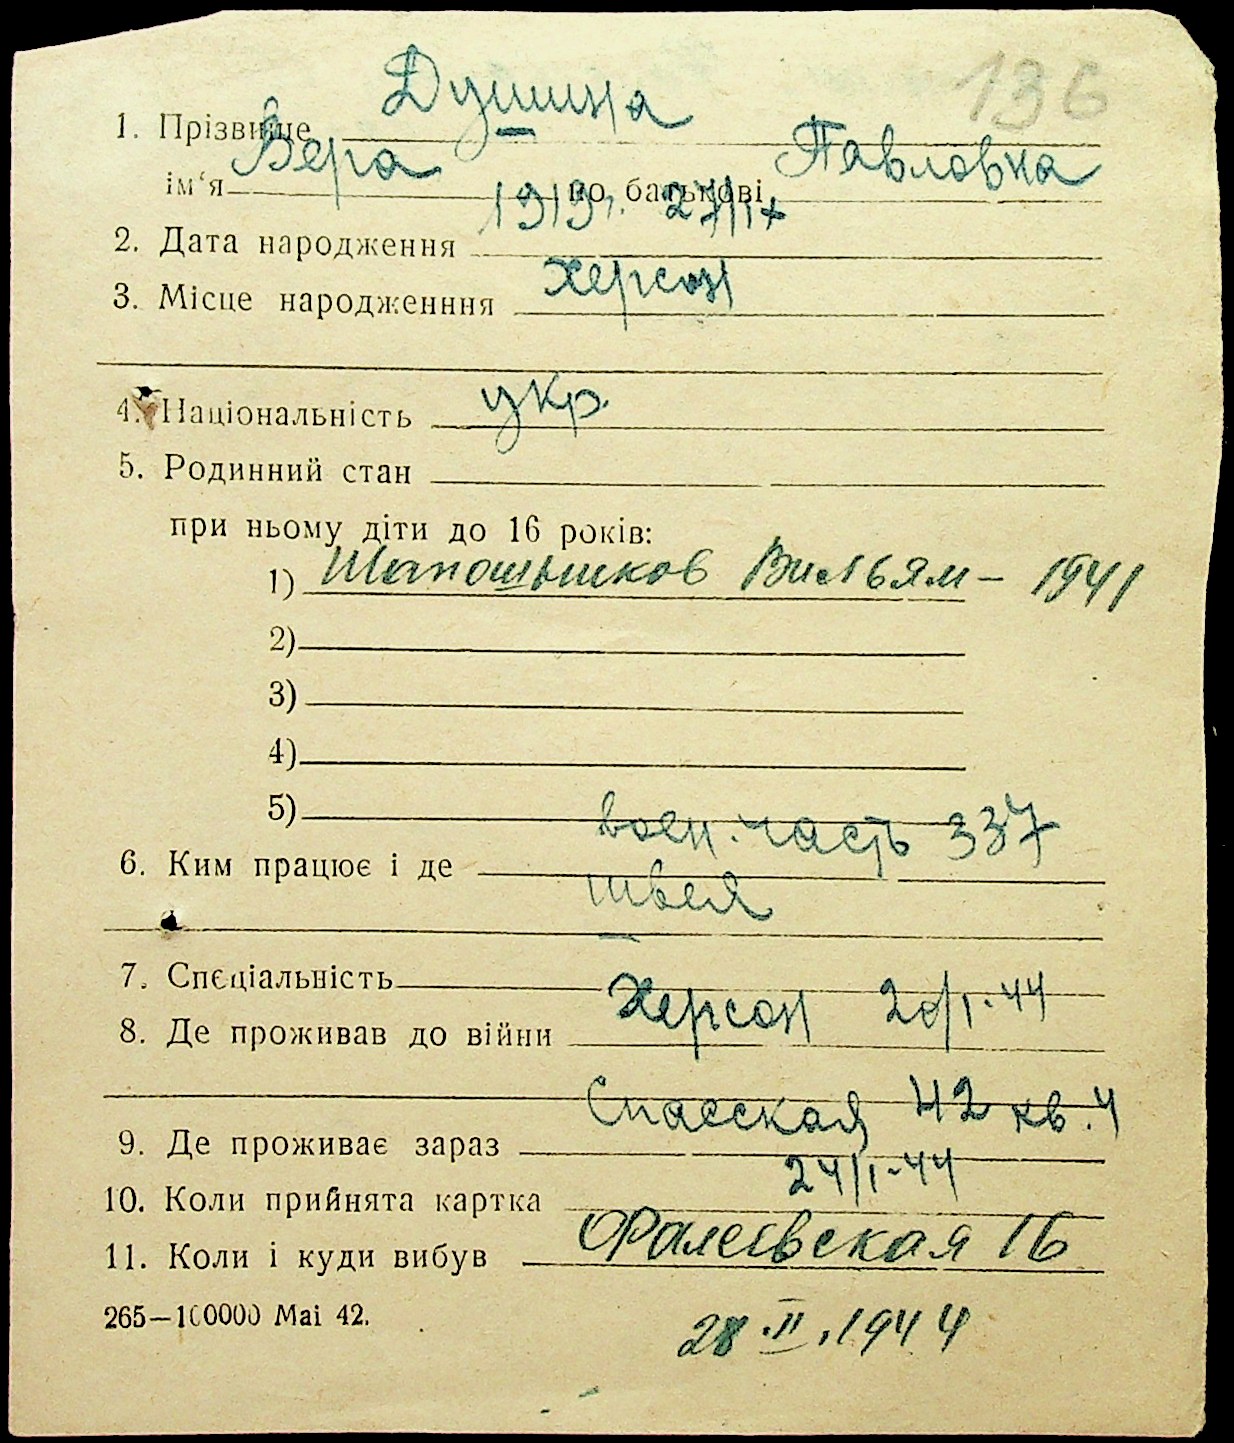 136
1. Прізвище Душина
ім‘я Вера по батькові Павловна
2. Дата народження 1919 г. 27/IX
3. Місце народженння Херсон
4. Національність укр.
5. Родинний стан
при ньому діти до 16 років:
1) Шапошников Вильям – 1941
2)
3)
4)
5)
6. Ким працює і де воен. часть 337
швея
7. Спєціальність
8. Де проживав до війни Херсон 20/I-44
9. Де проживає зараз Спасская 42 кв. 4
10. Коли прийнята картка 24/I-44
11. Коли і куди вибув Фалеевская 16
265—100000 Маі 42.
28.II.1944